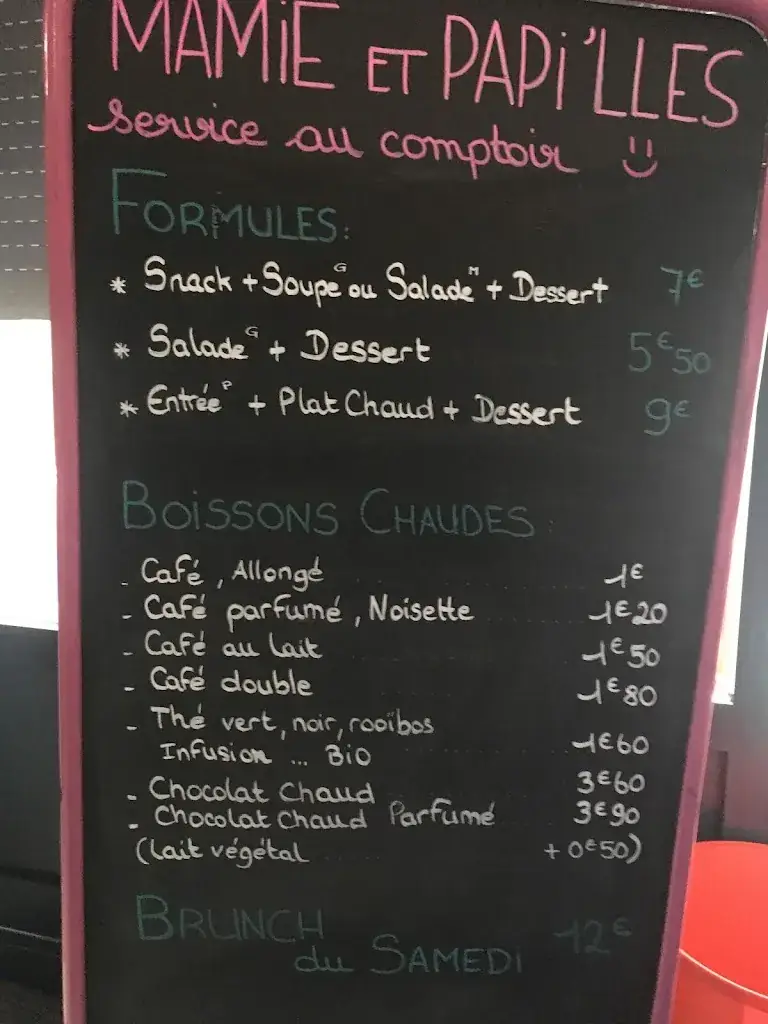 MAMiE ET PAPi'LLES
service au comptoir
FORMULES:
* Snack + Soupe G ou Salade M + Dessert 7€
* Salade G + Dessert 5€50
* Entrée P + Plat Chaud + Dessert 9€
BOiSSONS CHAUDES:
- Café, Allongé 1€
- Café parfumé, Noisette 1€20
- Café au lait 1€50
- Café double 1€80
- Thé vert, noir, rooïbos
Infusion ... BiO 1€60
- Chocolat Chaud 3€60
- Chocolat Chaud Parfumé 3€90
(lait végétal + 0€50)
BRUNCH
du SAMEDi 12€